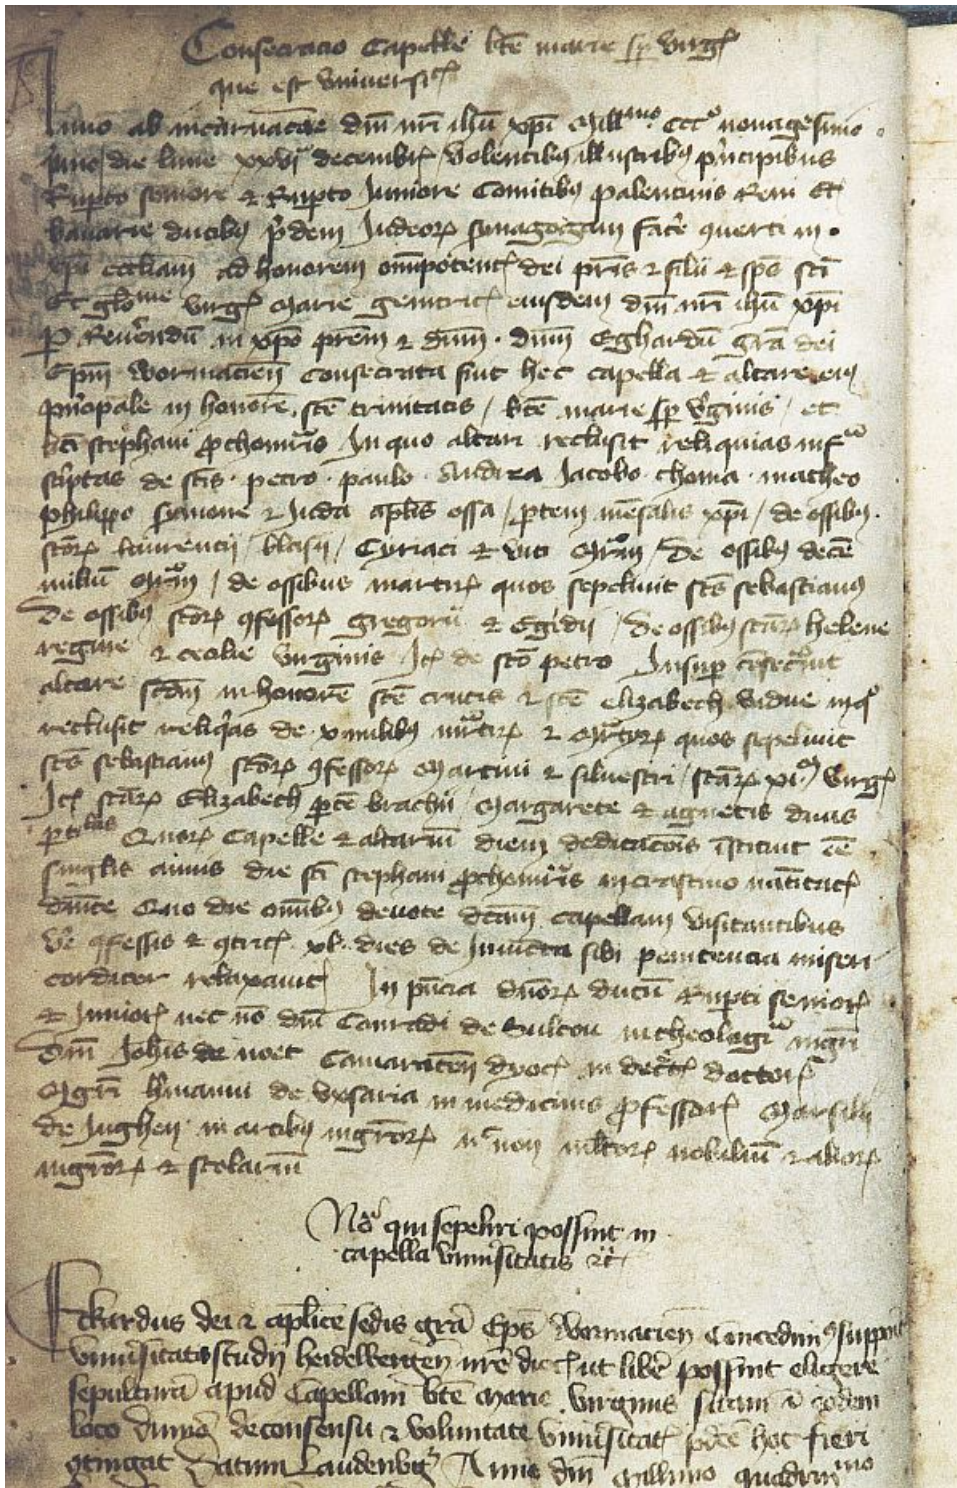 Consecracio Capelle bte marie sp virgis
que est vniversitatis
Anno ab incarnacoe dni nri ihu xpi Millmo ccco nonagesimo
primo die lune xxvi decembris volentibus illustribus principibus
Ruperto seniore et Ruperto Juniore Comitibus palentinis Reni Et
bauarie ducibus pridem Judeorum synagogam facere conuerti in
xpi eccliam ad honorem omnipotentis dei pris et filii et sps sci
Et gloriose virginis Marie genitricis eiusdem dni nri ihu xpi
Per Reuerendum in xpo prem et dnm dnm Eghardum gra dei
Epm wormaciens Consecrata sunt hec capella et altare eius
principale in honore sce trinitatis / bte marie sp virginis / et
bti stephani prothomris In quo altari reclusit reliquias infra
scriptas de scis petro paulo Andrea Jacobo thoma matheo
philippo symone et Juda aplis ossa / partem mensalis xpi / de ossibus
scorum laurencii / blasii / Cyriaci et viti Mrm / De ossibus decem
milium Mrm / de ossibus martirum quos sepeliuit scs sebastianus
De ossibus scorum confessorum Gregorii et Egidii / De ossibus scarum helene
regine et cecilie virginis Itm de sco petro Insuper consecrauit
altare scdm in honore sce crucis et sce elizabech vidue in quo
reclusit reliquias de x milibus martirum et Martyrum quos sepeliuit
scs sebastianus scorum confessorum Martini et siluestri / scarum xi m virgis
Itm scarum Elizabech partem brachii / Margarete et agnetis
partibus Quorum Capelle et altarium diem dedicacois instituit esse
singlis annis die sci stephani prothomris in crastino natiuitatis
dnice Quo die omibus deuote dcam capellam visitantibus
vere confessis et contritis xl dies de Iniuncta sibi penitencia miseri
corditer relaxauit In pncia dnorum ducum Ruperti senioris
et Junioris nec no dni Conradi de Soltou in theologia mgri
Dni Johis de noet Camaracen dyoc in decretis doctoris
Mgri hermanni de in medicinis professoris Marsilii
de Inghen in artibus mgrorum nec non multorum nobilium et aliorum
mgrorum et scolarium
Nota qui sepeliri possint in
capella vniuersitatis etc
Ekardus dei et aplice sedis gra Eps wormacien Concedimus
vniuersitatis studii heidelbergen nre dioc ut libere possint eligere
sepultura apud Capellam bte Marie virginis sitam in eodem
loco dummodo de consensu et voluntate vniuersitatis pdce hoc fieri
contingat Datum Laudenburg Anno dni Millimo quadrinmo